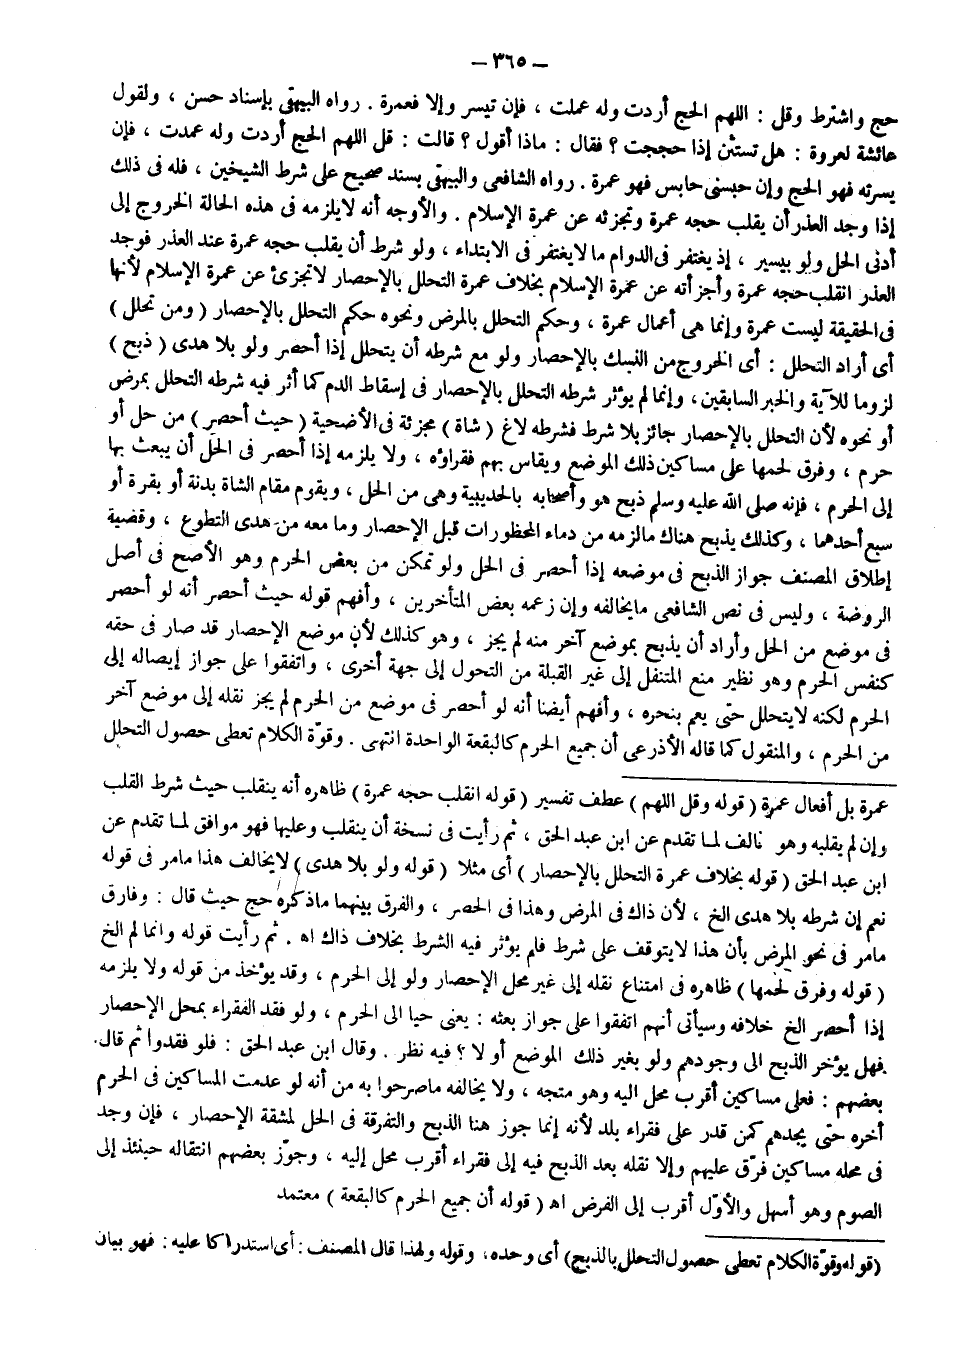 — ٣٦٥ —
حج واشترط وقل : اللهم الحج أردت وله عملت ، فإن تيسر وإلا فعمرة . رواه البيهقى بإسناد حسن ، ولقول
عائشة لعروة : هل تستثن إذا حججت ؟ فقال : ماذا أقول ؟ قالت : قل اللهم الحج أردت وله عمدت ، فإن
يسرته فهو الحج وإن حبسنى حابس فهو عمرة . رواه الشافعى والبيهقى بسند صحيح على شرط الشيخين ، فله فى ذلك
إذا وجد العذر أن يقلب حجه عمرة وتجزئه عن عمرة الإسلام . والأوجه أنه لايلزمه فى هذه الحالة الخروج إلى
أدنى الحل ولو بيسير ، إذ يغتفر فى الدوام ما لا يغتفر فى الابتداء ، ولو شرط أن يقلب حجه عمرة عند العذر فوجد
العذر انقلب حجه عمرة وأجزأته عن عمرة الإسلام بخلاف عمرة التحلل بالإحصار لاتجزئ عن عمرة الإسلام لأنها
فى الحقيقة ليست عمرة وإنما هى أعمال عمرة ، وحكم التحلل بالمرض ونحوه حكم التحلل بالإحصار ( ومن تحلل )
أى أراد التحلل : أى الخروج من النسك بالإحصار ولو مع شرطه أن يتحلل إذا أحصر ولو بلا هدى ( ذبح )
لزوما للآية والخبر السابقين ، وإنما لم يؤثر شرطه التحلل بالإحصار فى إسقاط الدم كما أثر فيه شرطه التحلل بمرض
أو نحوه لأن التحلل بالإحصار جائز بلا شرط فشرطه لاغ ( شاة ) مجزئة فى الأضحية ( حيث أحصر ) من حل أو
حرم ، وفرق لحمها على مساكين ذلك الموضع ويقاس بهم فقراؤه ، ولا يلزمه إذا أحصر فى الحل أن يبعث بها
إلى الحرم ، فإنه صلى الله عليه وسلم ذبح هو وأصحابه بالحديبية وهى من الحل ، ويقوم مقام الشاة بدنة أو بقرة أو
سبع أحدهما ، وكذلك يذبح هناك مالزمه من دماء المحظورات قبل الإحصار وما معه من هدى التطوع ، وقضية
إطلاق المصنف جواز الذبح فى موضعه إذا أحصر فى الحل ولو تمكن من بعض الحرم وهو الأصح فى أصل
الروضة ، وليس فى نص الشافعى مايخالفه وإن زعمه بعض المتأخرين ، وأفهم قوله حيث أحصر أنه لو أحصر
فى موضع من الحل وأراد أن يذبح بموضع آخر منه لم يجز ، وهو كذلك لأن موضع الإحصار قد صار فى حقه
كنفس الحرم وهو نظير منع المتنفل إلى غير القبلة من التحول إلى جهة أخرى ، واتفقوا على جواز إيصاله إلى
الحرم لكنه لايتحلل حتى يعم بنحره ، وأفهم أيضا أنه لو أحصر فى موضع من الحرم لم يجز نقله إلى موضع آخر
من الحرم ، والمنقول كما قاله الأذرعى أن جميع الحرم كالبقعة الواحدة انتهى . وقوّة الكلام تعطى حصول التحلل
عمرة بل أفعال عمرة ( قوله وقل اللهم ) عطف تفسير ( قوله انقلب حجه عمرة ) ظاهره أنه ينقلب حيث شرط القلب
وإن لم يقلبه وهو نالف لما تقدم عن ابن عبد الحق ، ثم رأيت فى نسخة أن ينقلب وعليها فهو موافق لما تقدم عن
ابن عبد الحق ( قوله بخلاف عمرة التحلل بالإحصار ) أى مثلا ( قوله ولو بلا هدى ) لايخالف هذا مامر فى قوله
نعم إن شرطه بلا هدى الخ ، لأن ذاك فى المرض وهذا فى الحصر ، والفرق بينهما ماذكره حج حيث قال : وفارق
مامر فى نحو المرض بأن هذا لايتوقف على شرط فلم يؤثر فيه الشرط بخلاف ذاك اه . ثم رأيت قوله وانما لم الخ
( قوله وفرق لحمها ) ظاهره فى امتناع نقله إلى غير محل الإحصار ولو إلى الحرم ، وقد يؤخذ من قوله ولا يلزمه
إذا أحصر الخ خلافه وسيأتى أنهم اتفقوا على جواز بعثه : يعنى حيا الى الحرم ، ولو فقد الفقراء بمحل الإحصار
فهل يؤخر الذبح الى وجودهم ولو بغير ذلك الموضع أو لا ؟ فيه نظر . وقال ابن عبد الحق : فلو فقدوا ثم قال
بعضهم : فعلى مساكين أقرب محل اليه وهو متجه ، ولا يخالفه ماصرحوا به من أنه لو عدمت المساكين فى الحرم
أخره حتى يجدهم كمن قدر على فقراء بلد لأنه إنما جوز هنا الذبح والتفرقة فى الحل لمشقة الإحصار ، فإن وجد
فى محله مساكين فرّق عليهم وإلا نقله بعد الذبح فيه إلى فقراء أقرب محل إليه ، وجوّز بعضهم انتقاله حينئذ إلى
الصوم وهو أسهل والأوّل أقرب إلى الفرض اه ( قوله أن جميع الحرم كالبقعة ) معتمد
( قوله وقوّة الكلام تعطى حصول التحلل بالذبح ) أى وحده ، وقوله ولهذا قال المصنف : أى استدراكا عليه : فهو بيان